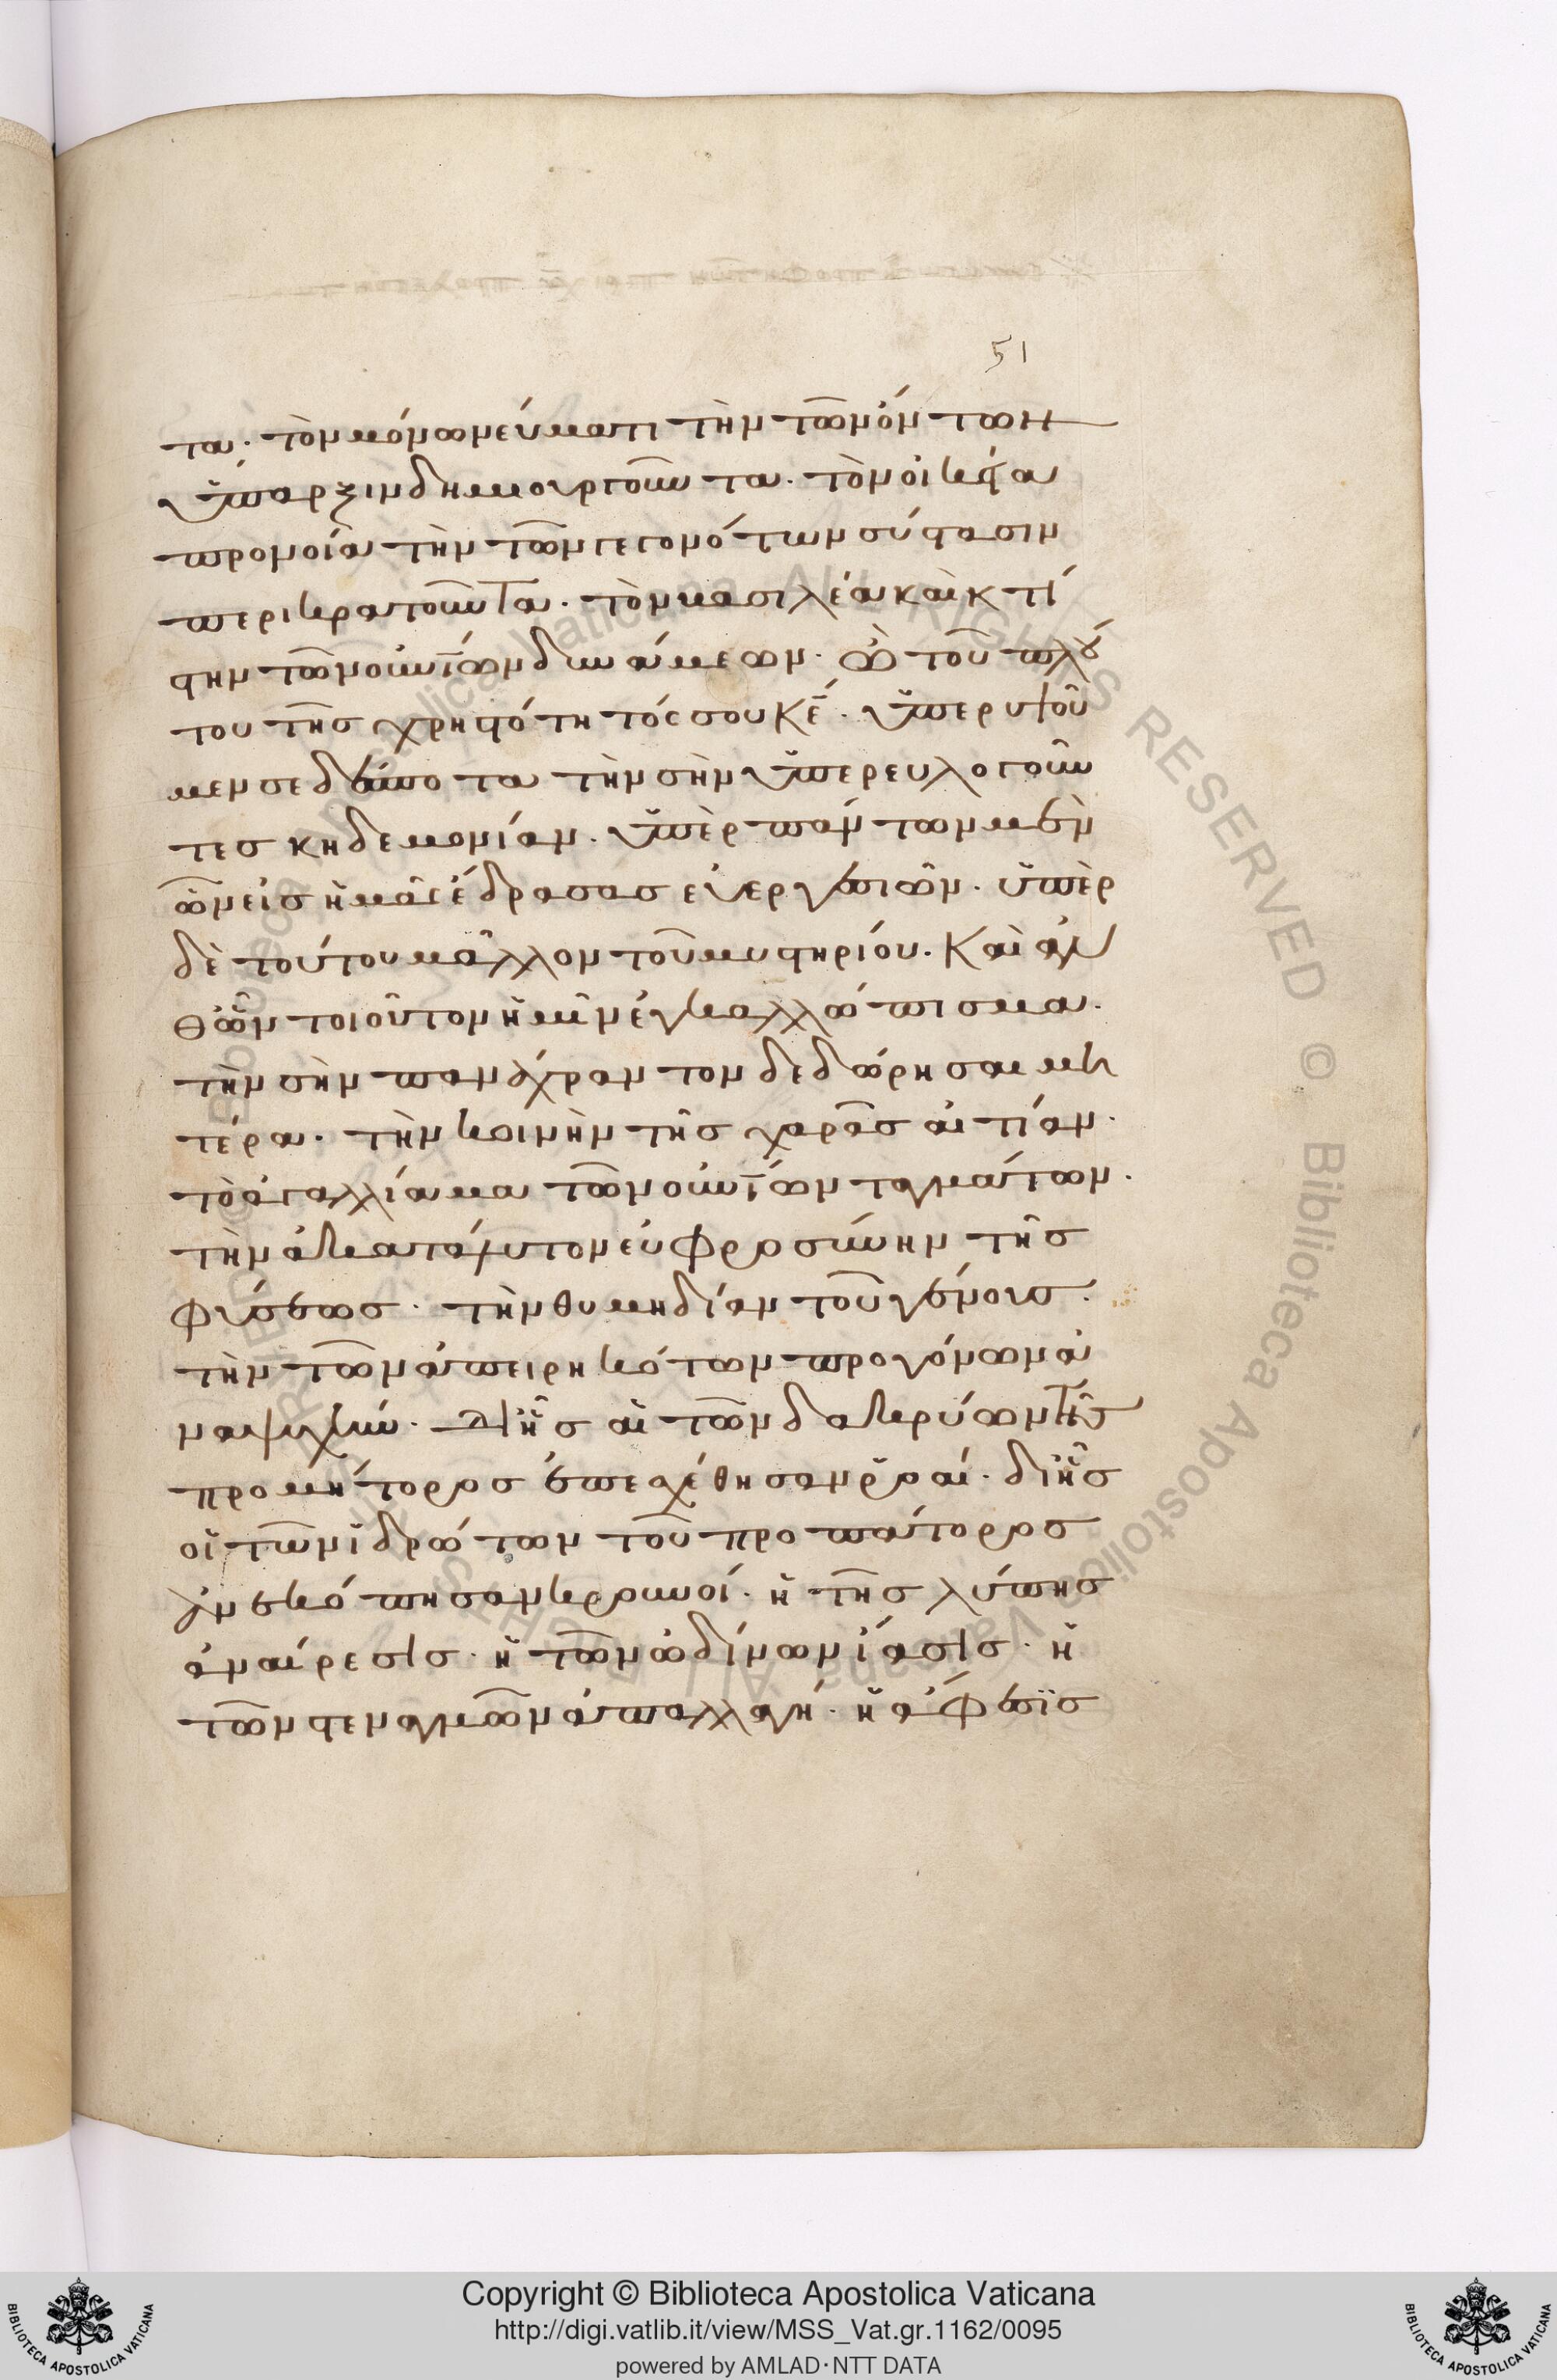 51
τα· τὸν μόνω νεύματι τὴν τῶν ὄντων
ὕπαρξιν δημιουργοῦντα. τὸν οἰκεία
προνοία τὴν τῶν γεγονότων σύστασιν
περικρατοῦντα. τὸν βασιλέα καὶ κτί
στην τῶν οὐνίων δυνάμεων. ὢ τοῦ πλού
του τῆς χρηστότητός σου κε. ὑπερυψοῦ
μεν σε δέσποτα τὴν σὴν ὑπερευλογοῦν
τες κηδεμονίαν. ὑπὲρ πάντων μὲν
ὧν εἰς ἡμᾶς ἔδρασας εὐεργεσιῶν. ὑπὲρ
δὲ τούτου μᾶλλον τοῦ μυστηρίου. Καὶ
θῶν τοιοῦτον ἡμῖν ἐγκαλλώπισμα.
τὴν σὴν πανάχραντον δεδώρησαι μη
τέρα. τὴν κοινὴν τῆς χαρᾶς αἰτίαν.
τὸ ἀγαλλίαμα τῶν οὐνίων ταγμάτων.
τὴν ἀκατάληπτον εὐφροσύνην τῆς
φύσεως. τὴν θυμηδίαν τοῦ γένους.
τὴν τῶν ἀπειρηκότων προγόνων ἀ
ναψυχήν. δι' ἧς αἱ τῶν δακρύων τῆς
προμήτορος ἐπεσχέθησαν ῥοαί. δι' ἧς
οἱ τῶν ἱδρώτων τοῦ προπάτορος
ἀνεκόπησαν κρουνοί. ἡ τῆς λύπης
ἀναίρεσις. ἡ τῶν ὠδίνων ἴασις. ἡ
τῶν στεναγμῶν ἀπαλλαγή. ἡ ἄφεσις
Copyright © Biblioteca Apostolica Vaticana
http://digi.vatlib.it/view/MSS_Vat.gr.1162/0095
powered by AMLAD·NTT DATA
BIBLIOTECA APOSTOLICA VATICANA
BIBLIOTECA APOSTOLICA VATICANA